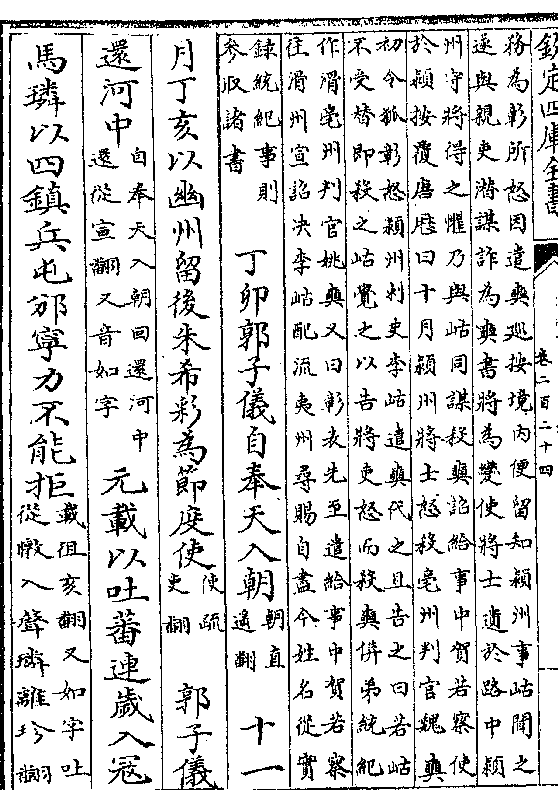 欽定四庫全書
卷二百二十四
務為彰所怒因遣奭廵按境内便留知潁州事岵聞之
遂與親吏潜謀詐為奭書將為變使將士遺於路中潁
州守將得之懼乃與岵同謀殺奭詔給事中賀若察使
於潁按覆唐厯曰十月潁州將士怒殺亳州判官魏奭
初令狐彰怒潁州刺史李岵遣奭代之且告之曰若岵
不受替即殺之岵覺之以告將吏怒而殺奭併弟統紀
作滑亳州判官姚奭又曰彰表先至遣給事中賀若察
往滑州宣詔决李岵配流夷州尋賜自盡今姓名從實
録統紀事則
參取諸書
丁卯郭子儀自奉天入朝
朝直
遥翻
十一
月丁亥以幽州留後朱希彩為節度使
使疏
吏翻
郭子儀
還河中
自奉天入朝回還河中
還從宣翻又音如字
元載以吐蕃連歲入冦
馬璘以四鎮兵屯邠寧力不能拒
載徂亥翻又如字吐
從暾入聲璘離珍翻